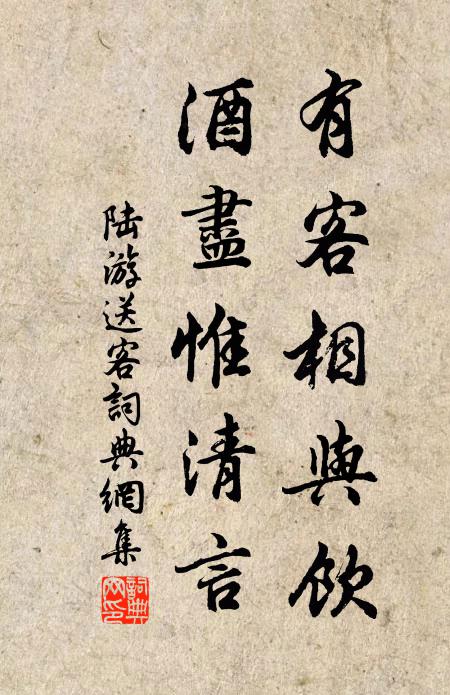 有客相與飲
酒盡惟清言
陸游送客詞典網集
詞典网印